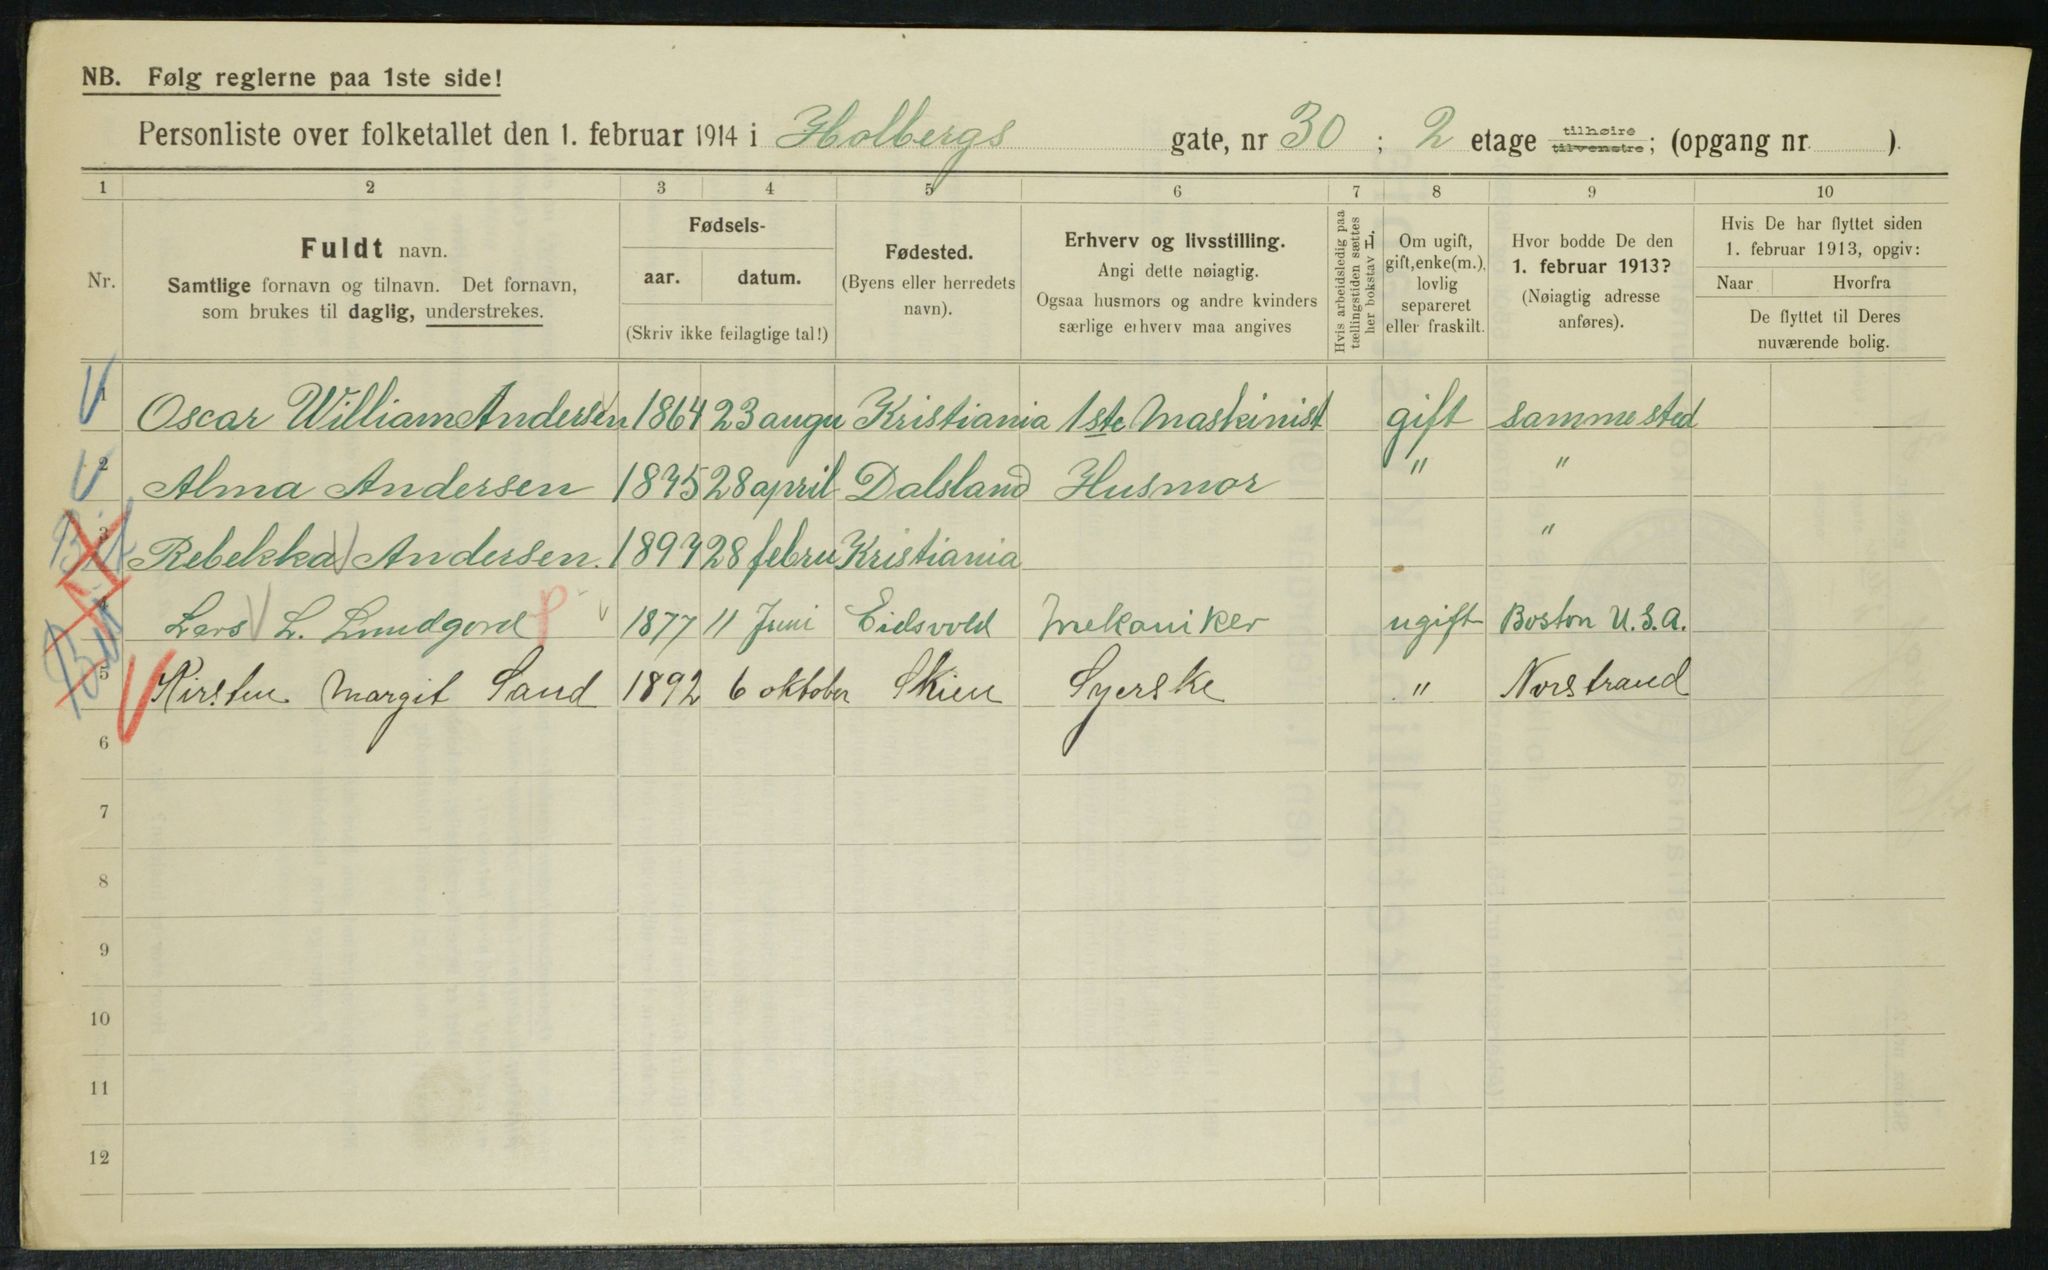 NB. Følg reglerne paa 1ste side!
Personliste over folketallet den 1. februar 1914 i Holbergs gate, nr 30 ; 2 etage tilhøire tilvenstre; (opgang nr ).
1 2 3 4 5 6 7 8 9 10
Nr.
Fuldt navn.
Samtlige fornavn og tilnavn. Det fornavn,
som brukes til daglig, understrekes.
Fødsels-
aar. datum.
(Skriv ikke feilagtige tal!)
Fødested.
(Byens eller herredets
navn).
Erhverv og livsstilling.
Angi dette nøiagtig.
Ogsaa husmors og andre kvinders
særlige erhverv maa angives
Hvis arbeidsledig paa
tællingstiden sættes
her bokstav L.
Om ugift,
gift, enke(m.),
lovlig
separeret
eller fraskilt.
Hvor bodde De den
1. februar 1913?
(Nøiagtig adresse
anføres).
Hvis De har flyttet siden
1. februar 1913, opgiv:
Naar Hvorfra
De flyttet til Deres
nuværende bolig.
1 Oscar William Andersen 1864 23 augu Kristiania 1ste Maskinist gift sammested
2 Alma Andersen 1875 28 april Dalsland Husmor " "
3 Rebekka Andersen. 1897 28 febru Kristiania "
4 Lars L. Lundgord 1877 11 Juni Eidsvold Mekaniker ugift Boston U.S.A.
5 Kirsten Margit Sand 1892 6 oktober Skien Syerske " Norstrand
6
7
8
9
10
11
12